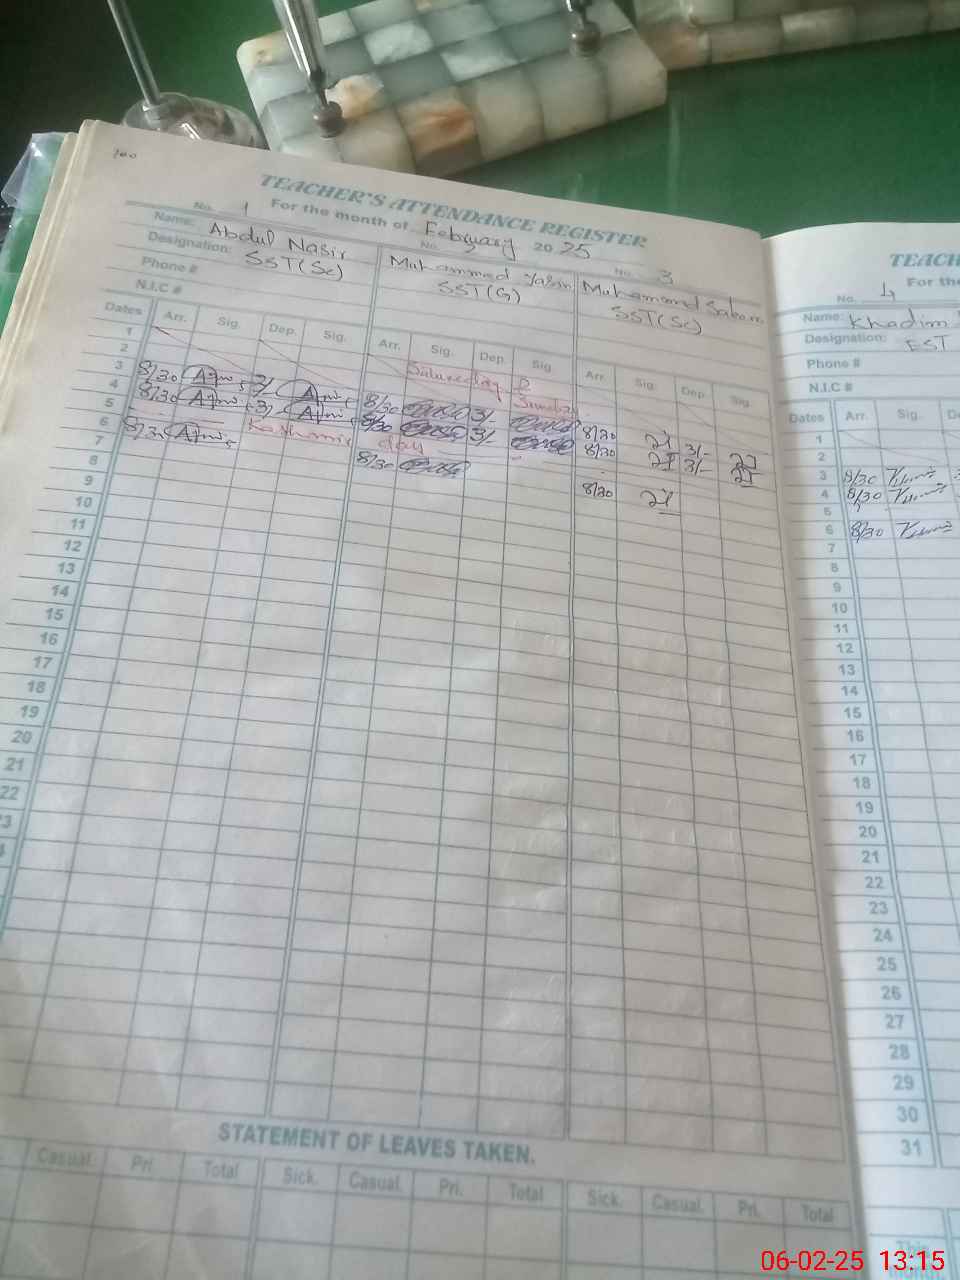 TEACHER'S ATTENDANCE REGISTER
For the month of February 2025
No. 1 No. No. 3
Name: Abdul Nasir Muhammed Yasin Muhammed
Designation: SST(Sc) SST(G) SST(Sc)
Phone #
N.I.C #
Dates Arr. Sig. Dep. Sig. Arr. Sig. Dep. Sig. Arr. Sig. Dep. Sig.
1
2 Sunday
3 8/30 3/- 8/30 3/- 8/30 3/-
4 8/30 3/- 8/30 3/- 8/30 3/-
5 Kashmir day
6 8/30 8/30 8/30
7
8
9
10
11
12
13
14
15
16
17
18
19
20
21
22
3
4
STATEMENT OF LEAVES TAKEN.
Casual. Pri. Total Sick. Casual. Pri. Total Sick. Casual. Pri. Total
TEACH
For the
No. 4
Name: Khadim
Designation: EST
Phone #
N.I.C #
Dates Arr. Sig. De
1
2
3 8/30
4 8/30
5
6 8/30
7
8
9
10
11
12
13
14
15
16
17
18
19
20
21
22
23
24
25
26
27
28
29
30
31
This
06-02-25 13:15